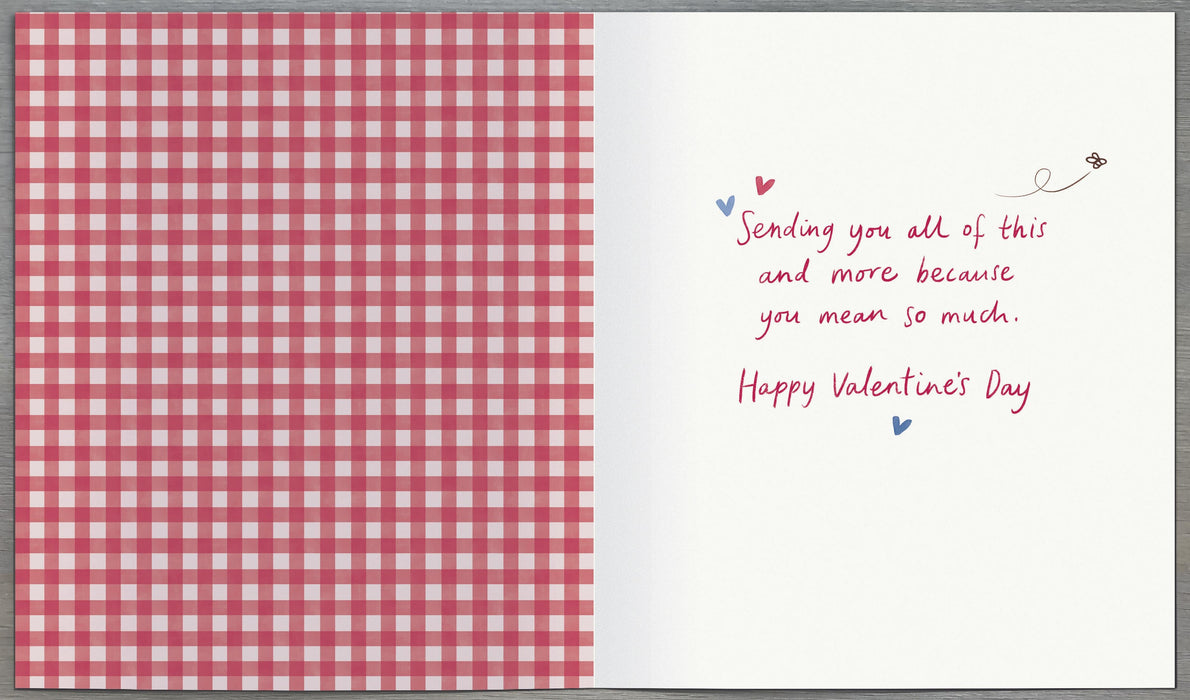 Sending you all of this
and more because
you mean so much.
Happy Valentine's Day